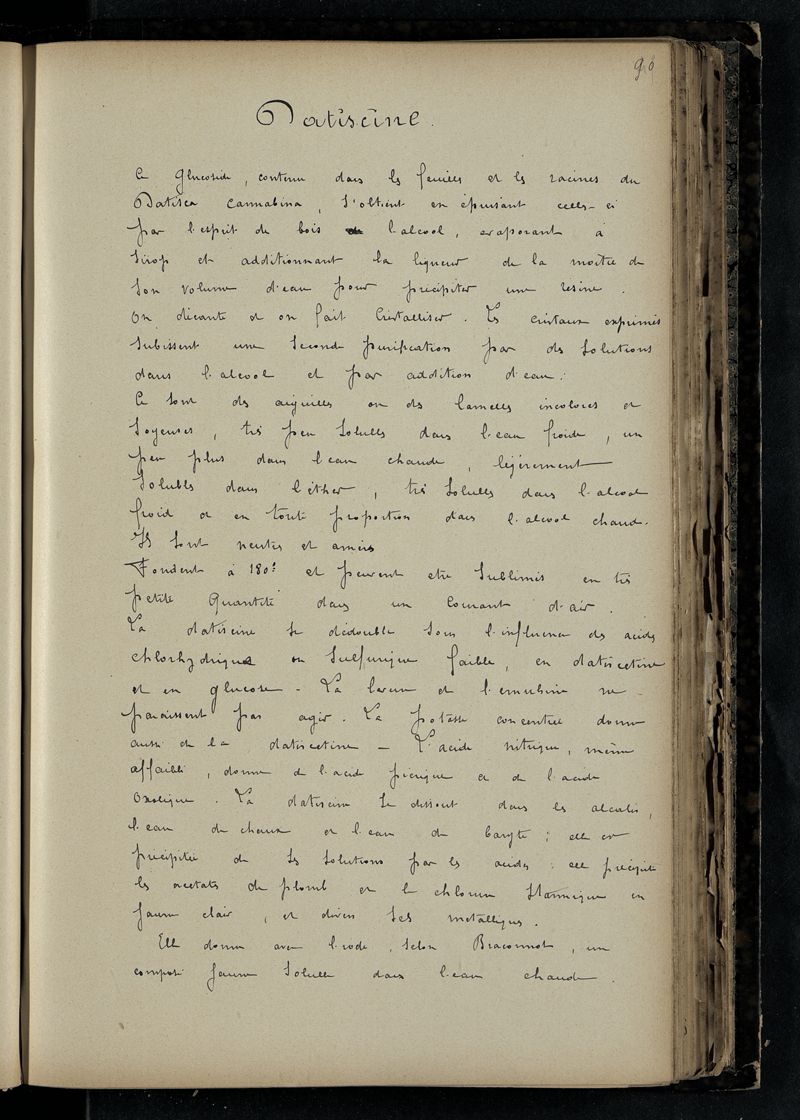 90
Datiscine.
Ce glucoside, contenu dans les feuilles et les racines du
Datisca Cannabina, s'obtient en épuisant celles-ci
par l'esprit de bois l'alcool, évaporant à
sirop et additionnant la liqueur de la moitié de
son volume d'eau pour précipiter une résine.
On décante et on fait cristalliser. Les cristaux exprimés
subissent une seconde purification par des solutions
dans l'alcool et par addition d'eau.
Ce sont des aiguilles ou des lamelles incolores et
soyeuses, très peu solubles dans l'eau froide, un
peu plus dans l'eau chaude, légèrement
solubles dans l'éther, très solubles dans l'alcool
froid et en toute proportion dans l'alcool chaud.
Ils sont neutres et amers
Fondent à 180° et peuvent être sublimés en très
petite quantité dans un courant d'air.
La datiscine se dédouble sous l'influence des acides
chlorhydrique ou sulfurique faible, en datiscetine
et en glucose - La levure et l'emulsine ne
paraissent pas agir. La potasse concentrée donne
aussi de la datiscetine - L'acide nitrique, même
affaibli, donne de l'acide picrique et de l'acide
oxalique. La datiscine se dissout dans les alcalis,
l'eau de chaux et l'eau de baryte; elle est
précipitée de ses solutions par les acides: elle précipite
les acétates de plomb et le chlorure stannique en
jaune clair, et divers sels métalliques.
Elle donne avec l'iode, selon Braconnot, un
composé jaune soluble dans l'eau chaude.